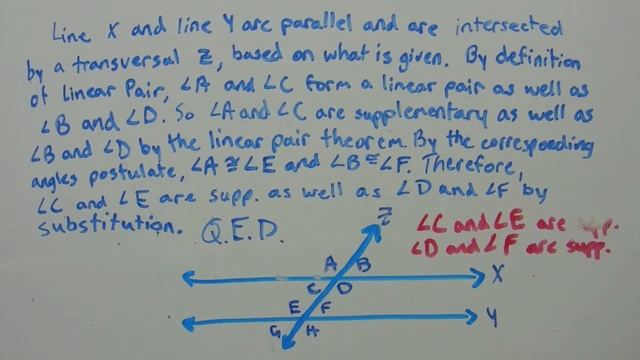 Line X and line Y are parallel and are intersected
by a transversal Z, based on what is given. By definition
of Linear Pair, ∠A and ∠C form a linear pair as well as
∠B and ∠D. So ∠A and ∠C are supplementary as well as
∠B and ∠D by the linear pair theorem. By the corresponding
angles postulate, ∠A ≅ ∠E and ∠B ≅ ∠F. Therefore,
∠C and ∠E are supp. as well as ∠D and ∠F by
substitution. Q.E.D.
∠C and ∠E are supp.
∠D and ∠F are supp.
Z
A B
X
C D
E F
Y
G H